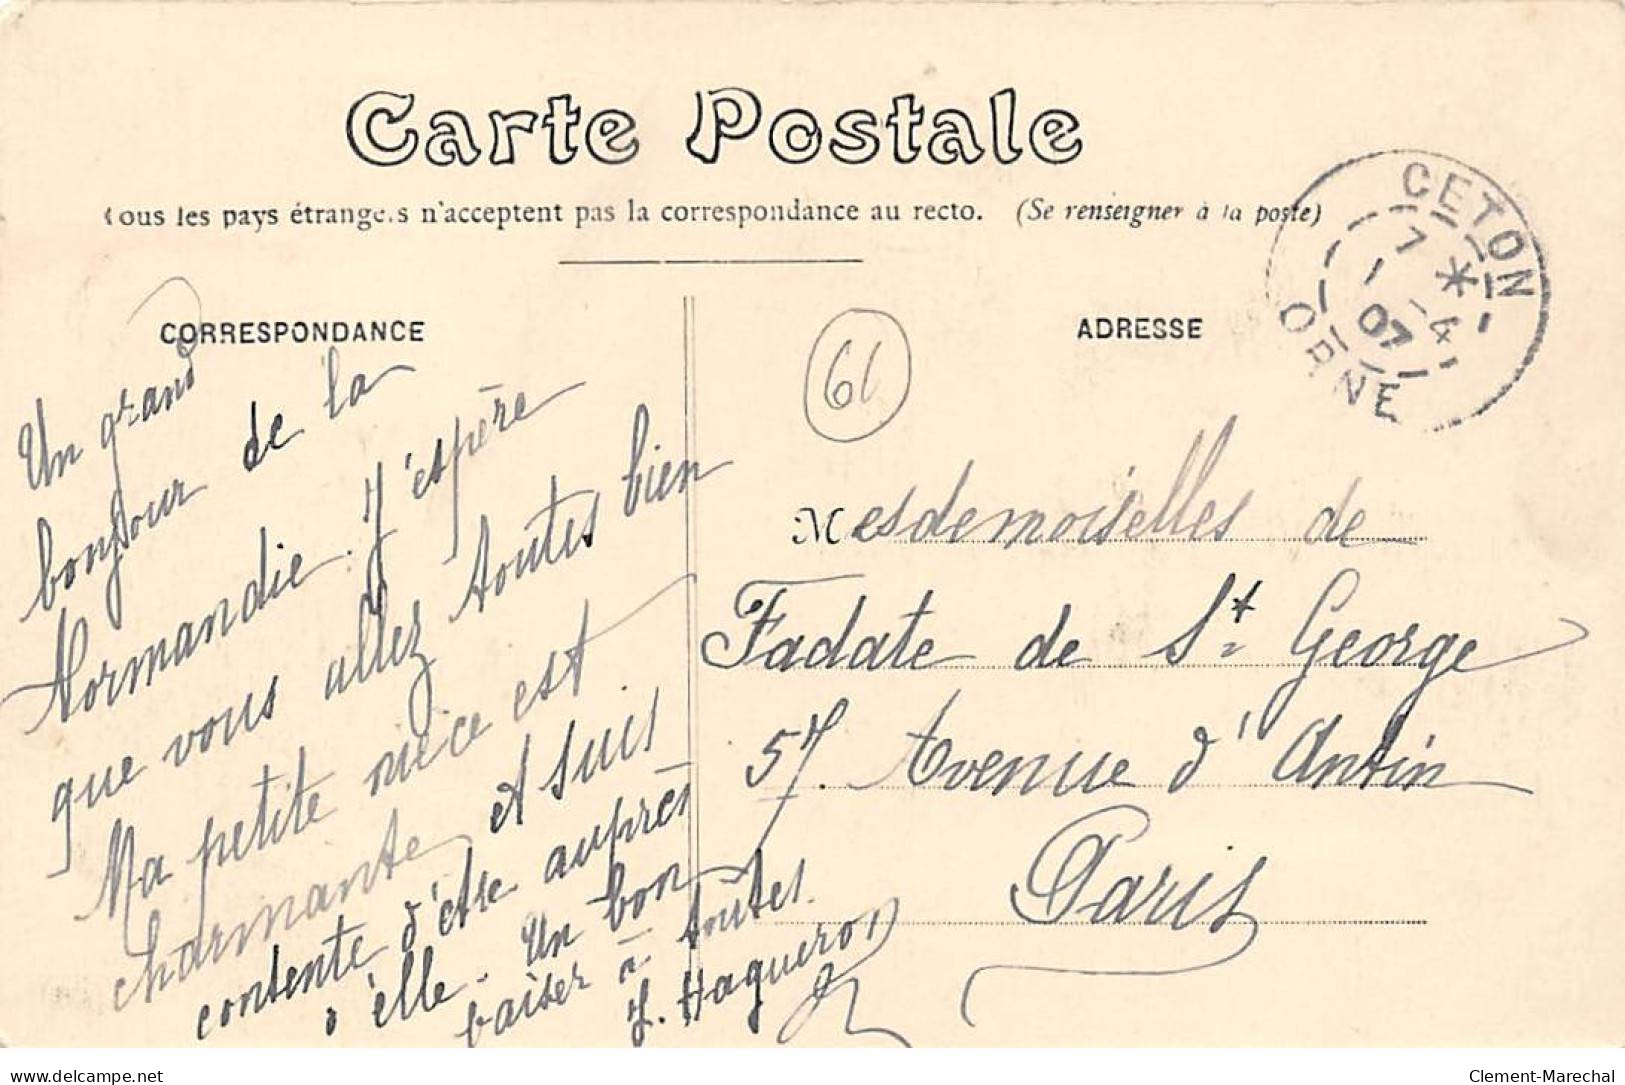 Carte Postale
Tous les pays étrangers n'acceptent pas la correspondance au recto. (Se renseigner à la poste)
CORRESPONDANCE
Un grand
bonjour de la
Normandie. J'espère
que vous allez toutes bien
Ma petite nièce est
charmante et suis
contente d'être auprès
d'elle. Un bon
baiser à toutes.
ADRESSE
61
CETON
7 *
1 - 4
07
ORNE
Mesdemoiselles de
Fadate de St George
57. Avenue d'Antin
Paris
delcampe.net
Clement-Marechal